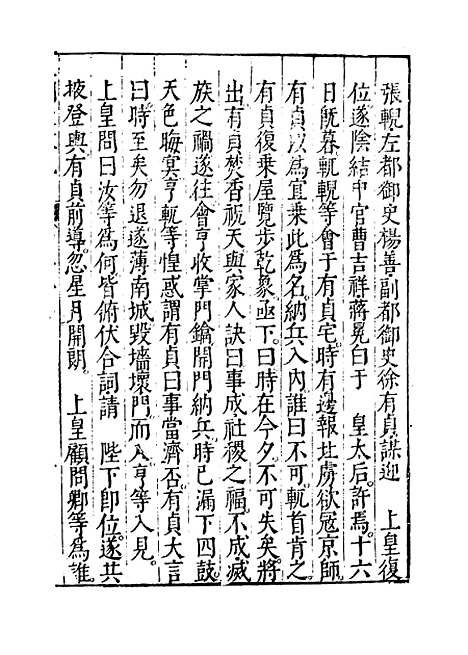 張輗左都御史楊善副都御史徐有貞謀迎　上皇復
位遂陰結中官曹吉祥蔣冕白于　皇太后。許焉。十六
日旣暮軏輗等會于有貞宅。時有邊報北虜欲冦京師。
有貞以爲宜乗此爲名。納兵入內。誰曰不可。軏首肯之。
有貞復乗屋覽步乾象。亟下。曰時在今夕。不可失矣。將
出有貞焚香祝天。與家人訣曰事成社稷之福。不成滅
族之禍。遂往會亨收掌門鑰。開門納兵。時已漏下四鼓。
天色晦冥。亨軏等惶惑。謂有貞曰事當濟否。有貞大言
曰時至矣。勿退。遂薄南城。毀墻壞門而入。亨等入見。
上皇問曰汝等爲何。皆俯伏合詞請　陛下卽位。遂共
掖登輿。有貞前導。忽星月開朗。　上皇顧問卿等爲誰。